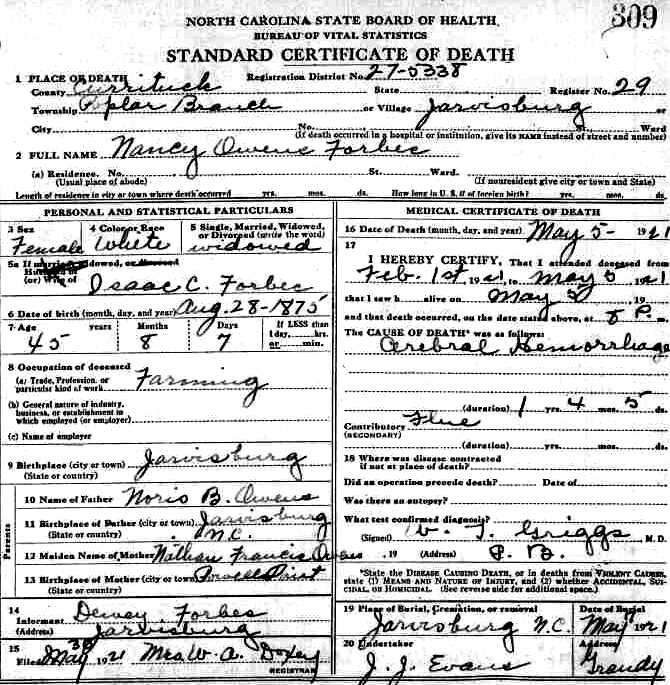 309
NORTH CAROLINA STATE BOARD OF HEALTH
BUREAU OF VITAL STATISTICS
STANDARD CERTIFICATE OF DEATH
1 PLACE OF DEATH Registration District No. 27-5338
County Currituck State Register No. 29
Township Poplar Branch or Village Jarvisburg or
City No. St. Ward
(If death occurred in a hospital or institution, give its NAME instead of street and number)
2 FULL NAME Nancy Owens Forbes
(a) Residence. No. St. Ward.
(Usual place of abode) (If nonresident give city or town and State)
Length of residence in city or town where death occurred yrs. mos. ds. How long in U. S. if of foreign birth? yrs. mos. ds.
PERSONAL AND STATISTICAL PARTICULARS
3 Sex 4 Color or Race 5 Single, Married, Widowed, or Divorced (write the word)
Female White widowed
5a If married, widowed, or divorced
Husband of
(or) Wife of Isaac C. Forbes
6 Date of birth (month, day, and year) Aug. 28-1875
7 Age years Months Days If LESS than
45 8 7 1 day, hrs.
or min.
8 Occupation of deceased
(a) Trade, Profession, or particular kind of work Farming
(b) General nature of industry, business, or establishment in which employed (or employer)
(c) Name of employer
9 Birthplace (city or town) Jarvisburg
(State or country)
Parents
10 Name of Father Noris B. Owens
11 Birthplace of Father (city or town) Jarvisburg
(State or country) N.C.
12 Maiden Name of Mother Francis Owens
13 Birthplace of Mother (city or town) Powells Point
(State or country)
14
Informant Dewey Forbes
(Address) Jarvisburg
15
Filed May 30 1921 Mrs W. A. Doxey
REGISTRAR
MEDICAL CERTIFICATE OF DEATH
16 Date of Death (month, day, and year) May 5- 1921
17
I HEREBY CERTIFY, That I attended deceased from
Feb. 1st 1921, to May 5 1921
that I saw h alive on May 5, 19
and that death occurred, on the date stated above, at 8 P. m.
The CAUSE OF DEATH* was as follows:
Cerebral Hemorrhage
(duration) 1 yrs. 4 mos. 5 ds.
Contributory Flue
(SECONDARY)
(duration) yrs. mos. ds.
18 Where was disease contracted
if not at place of death?
Did an operation precede death? Date of
Was there an autopsy?
What test confirmed diagnosis?
(Signed) W. T. Griggs M. D.
, 19 (Address) P. B.
*State the DISEASE CAUSING DEATH, or in deaths from VIOLENT CAUSES,
state (1) MEANS AND NATURE OF INJURY, and (2) whether ACCIDENTAL, SUI-
CIDAL, or HOMICIDAL. (See reverse side for additional space.)
19 Place of Burial, Cremation, or removal Date of Burial
Jarvisburg N.C. May 1921
20 Undertaker Address
J. J. Evans Grandy